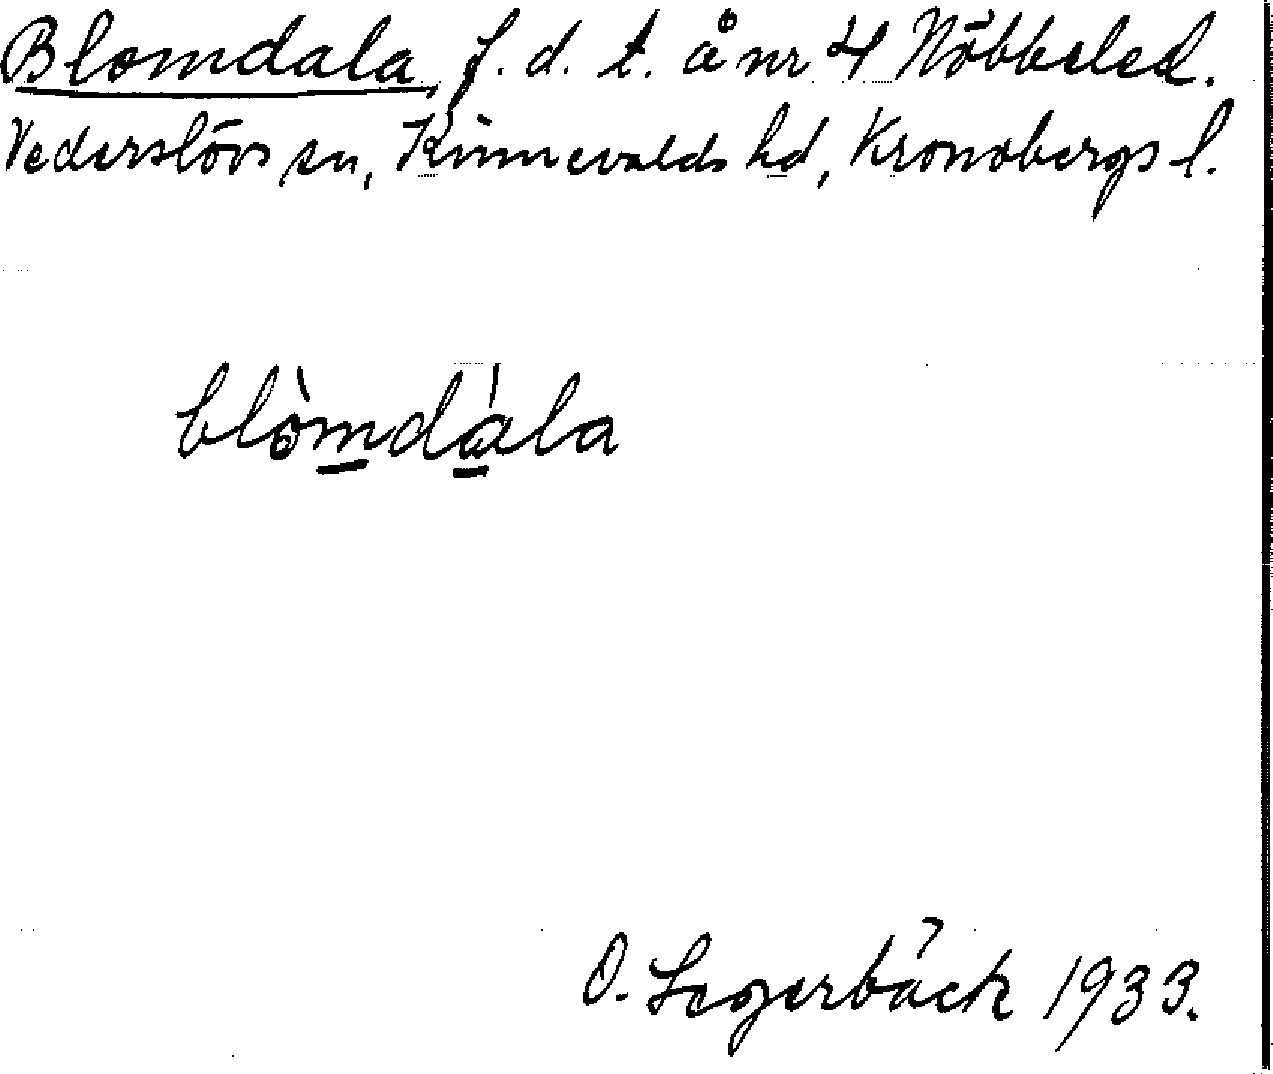 Blomdala, f. d. t. å nr 4 Nöbbeled.
Vederslövs sn, Kinnevalds hd, Kronobergs l.
blòmdàla
O. Segerbäck 1933.